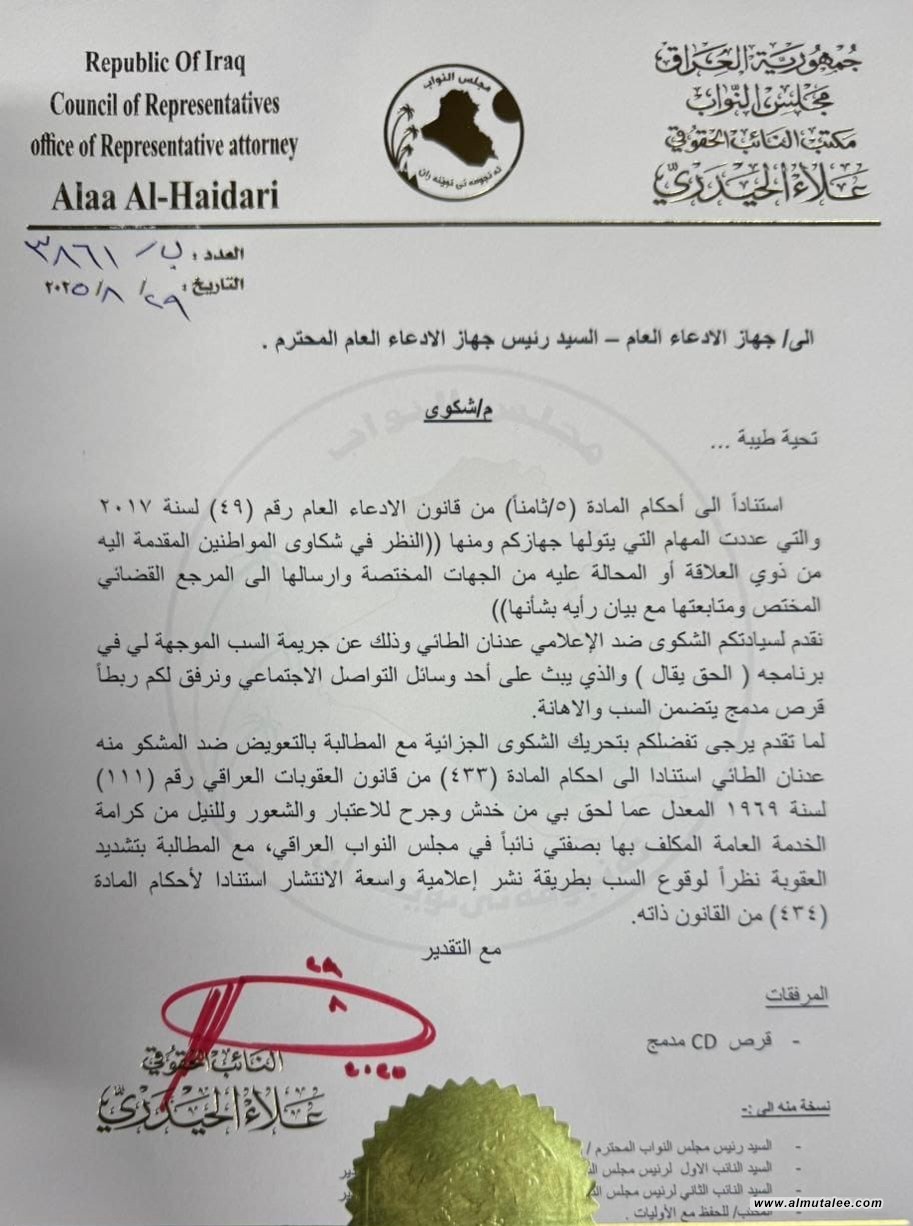 Republic Of Iraq
Council of Representatives
office of Representative attorney
Alaa Al-Haidari
مجلس النواب
جمهورية العراق
مجلس النواب
مكتب النائب الحقوقي
علاء الحيدري
العدد : ب/ ٣٨٦١
التاريخ : ٢٩/ ٨/ ٢٠٢٥
الى/ جهاز الادعاء العام – السيد رئيس جهاز الادعاء العام المحترم .
م/شكوى
تحية طيبة ...
استناداً الى أحكام المادة (٥/ثامناً) من قانون الادعاء العام رقم (٤٩) لسنة ٢٠١٧
والتي عددت المهام التي يتولها جهازكم ومنها ((النظر في شكاوى المواطنين المقدمة اليه
من ذوي العلاقة أو المحالة عليه من الجهات المختصة وارسالها الى المرجع القضائي
المختص ومتابعتها مع بيان رأيه بشأنها))
نقدم لسيادتكم الشكوى ضد الإعلامي عدنان الطائي وذلك عن جريمة السب الموجهة لي في
برنامجه ( الحق يقال ) والذي يبث على أحد وسائل التواصل الاجتماعي ونرفق لكم ربطاً
قرص مدمج يتضمن السب والاهانة.
لما تقدم يرجى تفضلكم بتحريك الشكوى الجزائية مع المطالبة بالتعويض ضد المشكو منه
عدنان الطائي استنادا الى احكام المادة (٤٣٣) من قانون العقوبات العراقي رقم (١١١)
لسنة ١٩٦٩ المعدل عما لحق بي من خدش وجرح للاعتبار والشعور وللنيل من كرامة
الخدمة العامة المكلف بها بصفتي نائباً في مجلس النواب العراقي، مع المطالبة بتشديد
العقوبة نظراً لوقوع السب بطريقة نشر إعلامية واسعة الانتشار استنادا لأحكام المادة
(٤٣٤) من القانون ذاته.
مع التقدير
٢٩
٨
٢٠٢٥
النائب الحقوقي
علاء الحيدري
المرفقات
- قرص CD مدمج
نسخة منه الى :-
- السيد رئيس مجلس النواب المحترم /
- السيد النائب الاول لرئيس مجلس
- السيد النائب الثاني لرئيس مجلس
- المكتب/ للحفظ مع الأوليات .
www.almutalee.com